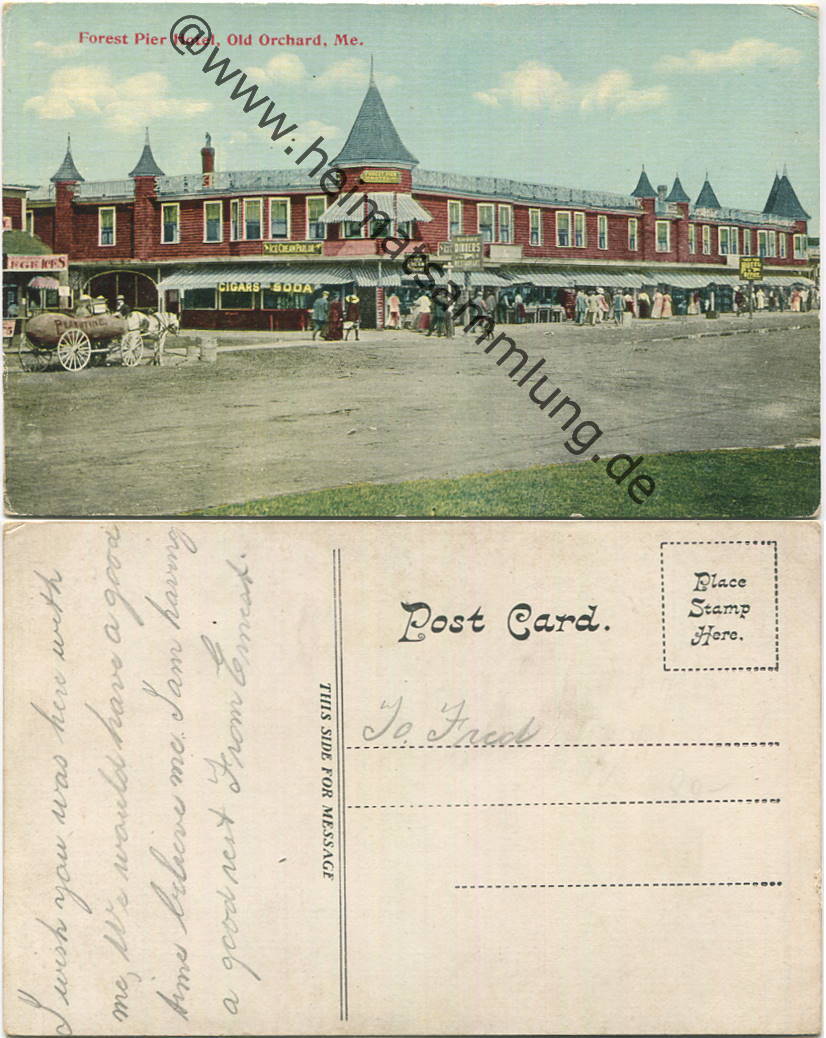 Forest Pier Hotel, Old Orchard, Me.
@www.heimatsammlung.de
ICE CREAM PARLOR
DINNERS
DINNERS
CIGARS SODA
Post Card.
Place
Stamp
Here.
THIS SIDE FOR MESSAGE
To, Fred
I wish you was here with
me, We would have a good
time believe me. I am having
a good rest From Ernest.